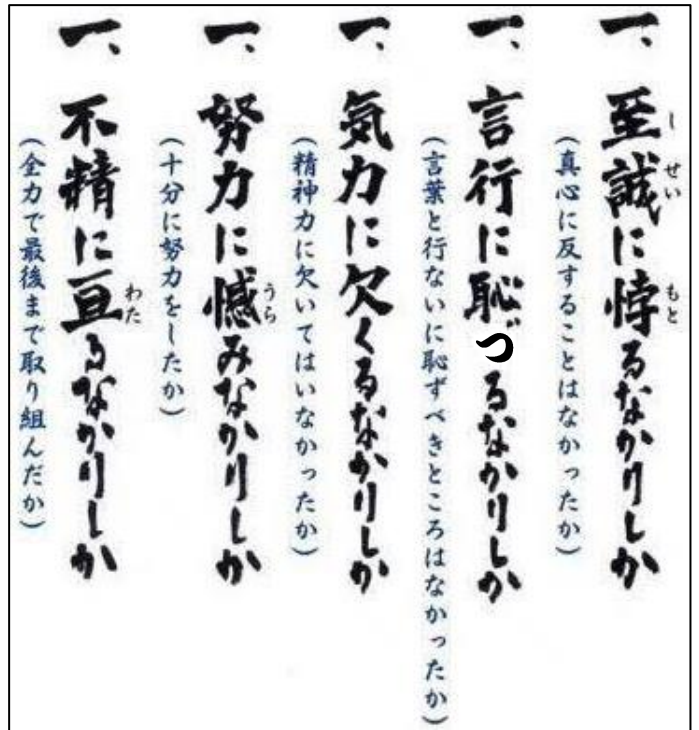 一、至誠に悖るなかりしか
しせい
もと
(真心に反することはなかったか)
一、言行に恥づるなかりしか
(言葉と行ないに恥ずべきところはなかったか)
一、気力に欠くるなかりしか
(精神力に欠いてはいなかったか)
一、努力に憾みなかりしか
うら
(十分に努力をしたか)
一、不精に亘るなかりしか
わた
(全力で最後まで取り組んだか)